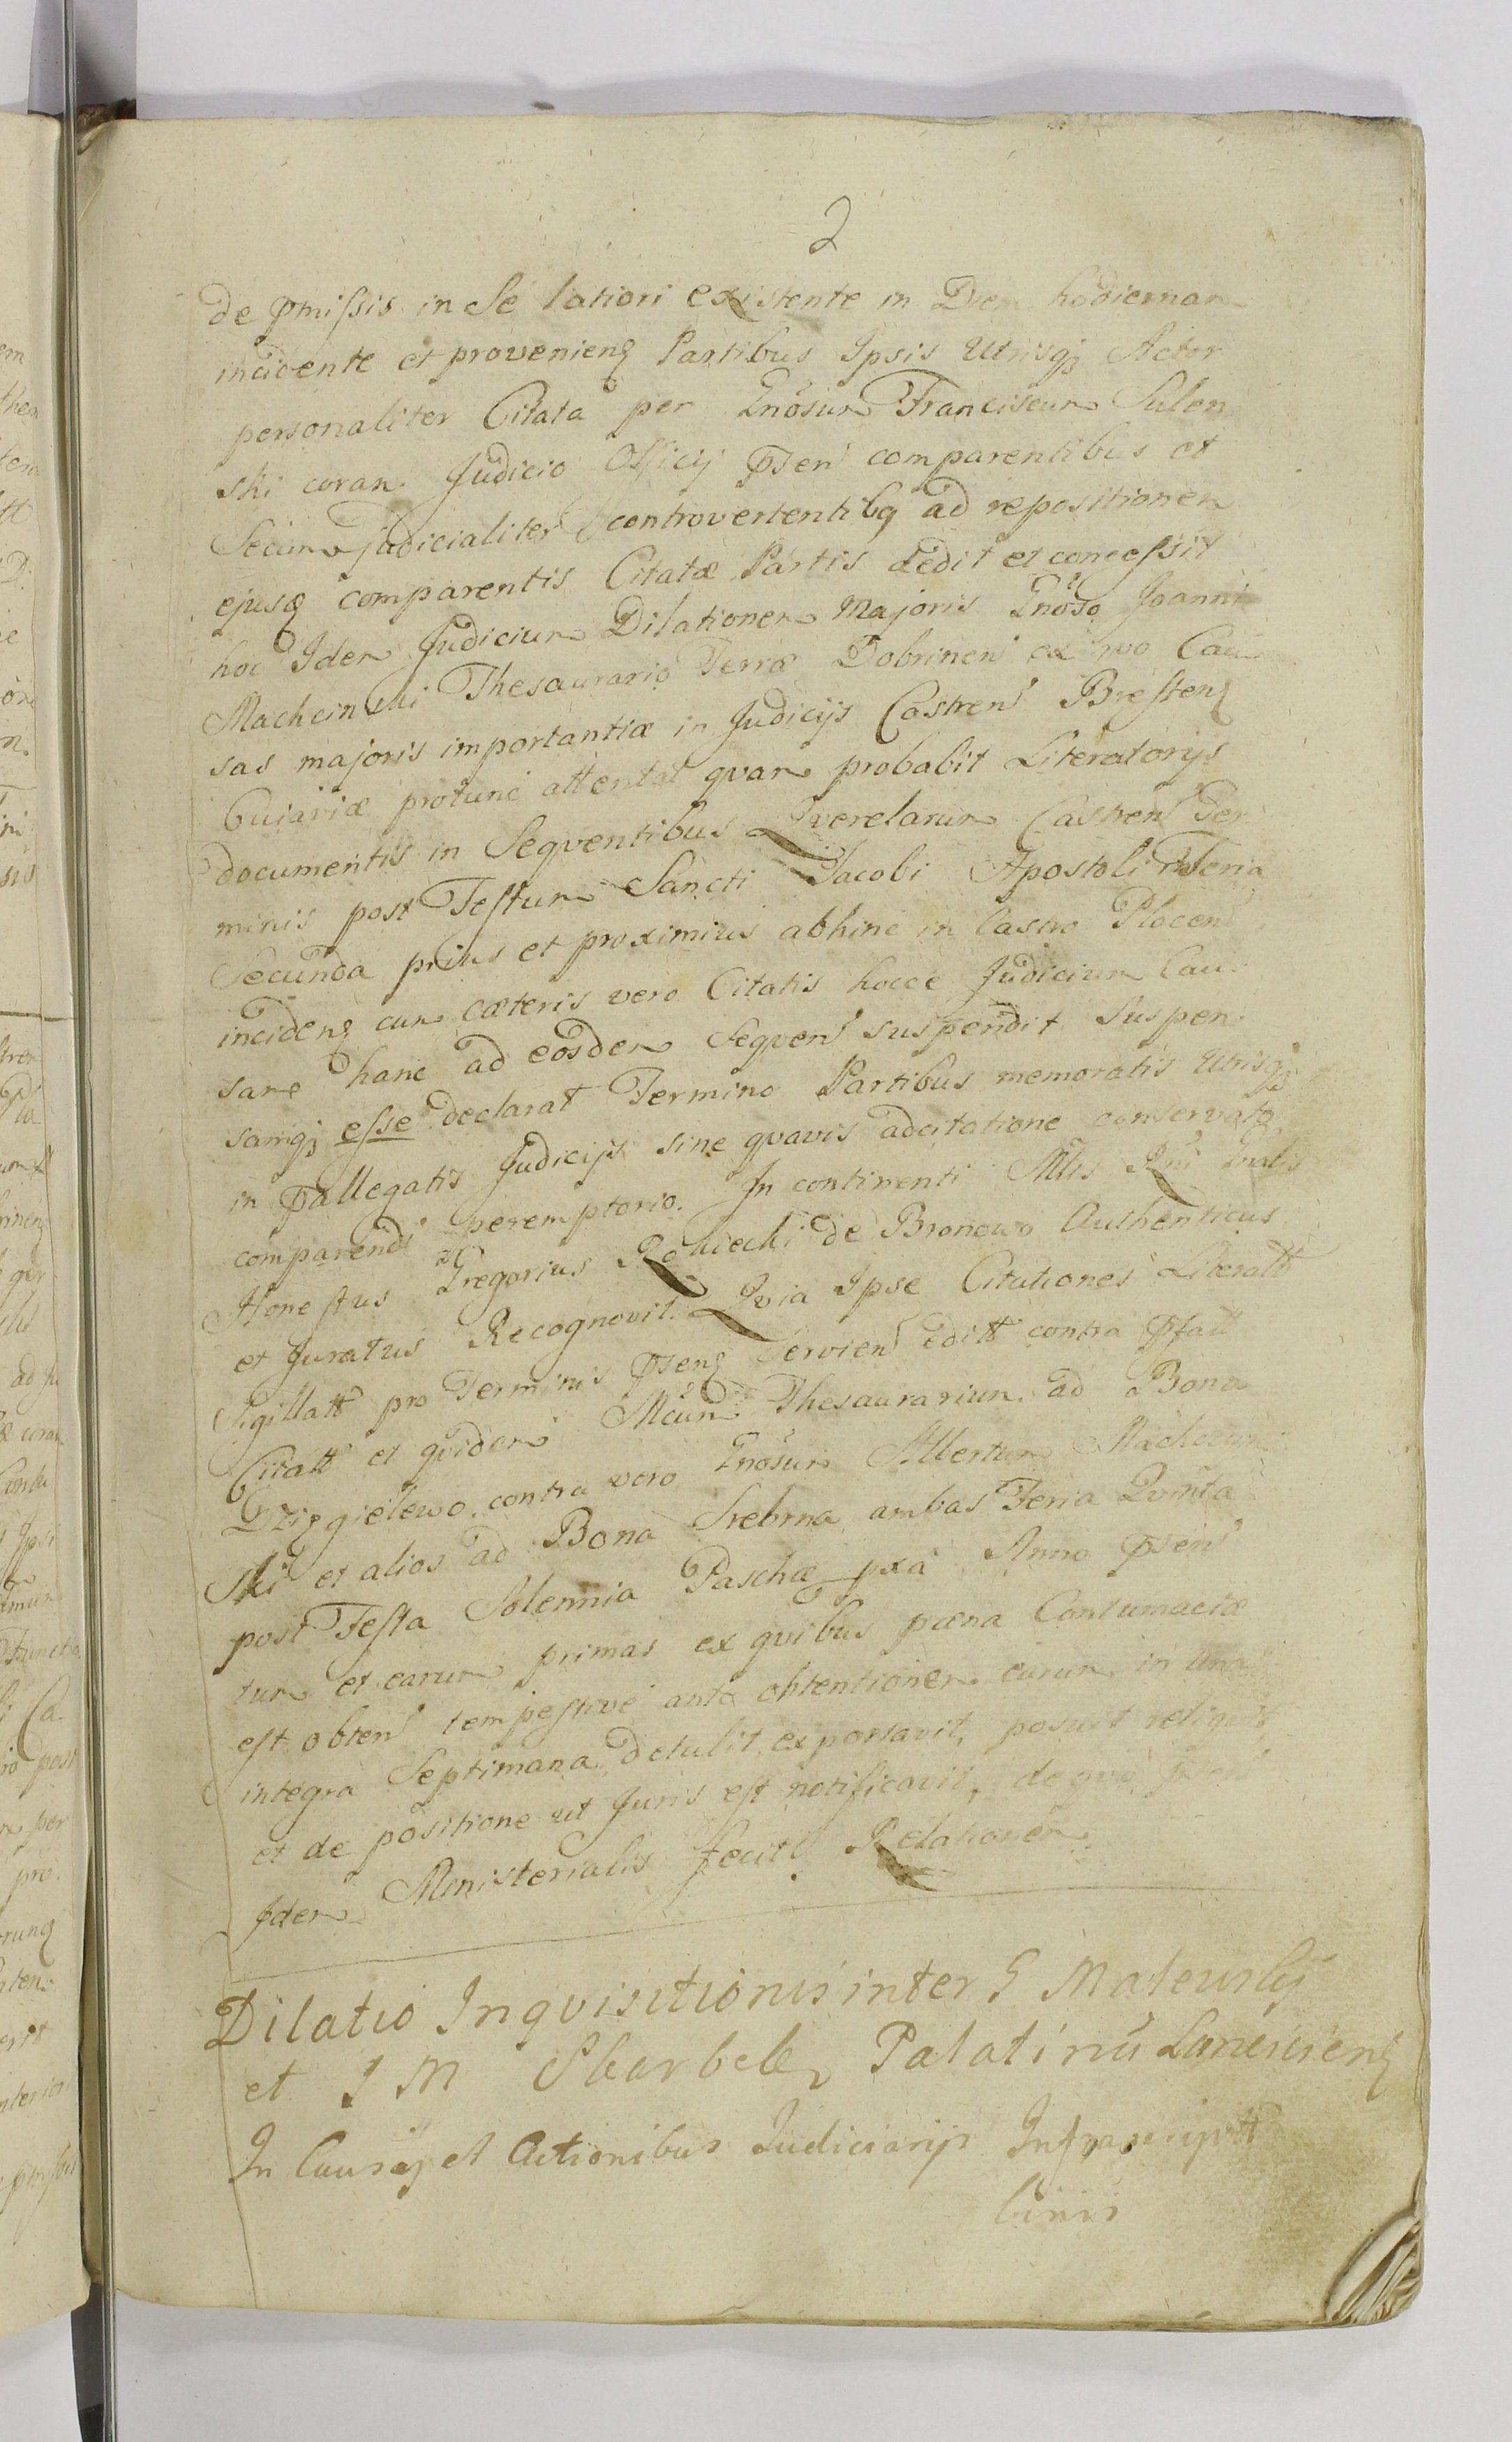 2
de pmissis in Se latiori existente in Diem hodiernam
incidente et provenienq Partibus Ipsis Utrisqz Actor
personaliter Citata per Gnosum Franciscum Sulen
ski coram Judicio Officij psen comparentibus et
Secum judicialiter controvertentibq ad repositionem
ejusq comparentis Citatæ Partis dedit et concessit
hoc Idem Judicium Dilationem Majoris Gnoso Joanni
Macheinski Thesaurario Terræ Dobrinen ex vo Cau
sas majoris importantiæ in Judicijs Castren Brestenq
Cujaviæ protunc attentat quam probabit Literatorijs
documentis in Sequentibus Querelarum Castren Ter
minis post Festum Sancti Jacobi Apostoli Feria
Secunda prius et proximius abhinc in Castro Plocen
incidenq cum cæteris vero Citatis hocce Judicium Cau
sam hanc ad eosdem Sequen suspendit Suspen
samqz esse declarat Termino Partibus memoratis Utrisqz
in pallegatis Judicijs sine quavis adcitatione conservato
comparendi peremptorio. In continenti Mlis Rni Gnalis
Honestus Gregorius de Bronowo Authenticus
et Juratus Recognovit. Quia Ipse Citationes Literatt
Sigillatt pro Terminis psenq Servien editt contra pfatt
Citatt et quidem Mcum Thesaurarium ad Bona
Dzięgielewo contra vero Gnosum Albertum Machcin
ski et alios ad Bona Srebrna ambas Feria Quinta
post Festa Solennia Paschæ pxa Anno psen
tum et earum primas ex quibus pæna Contumaciæ
est obten tempestive ante obtentionem earum in una
integra Septimana detulit, exportavit, posuit reliquit,
et de positione ut Juris est notificavit, de quo
Idem Ministerialis fecit Relationem
Dilatio Inquisitionis inter G Mateusky
et I M Skarbek Palatinu Lanciciens
In Causis et Actionibus Judiciarijs Infrascriptt
binis